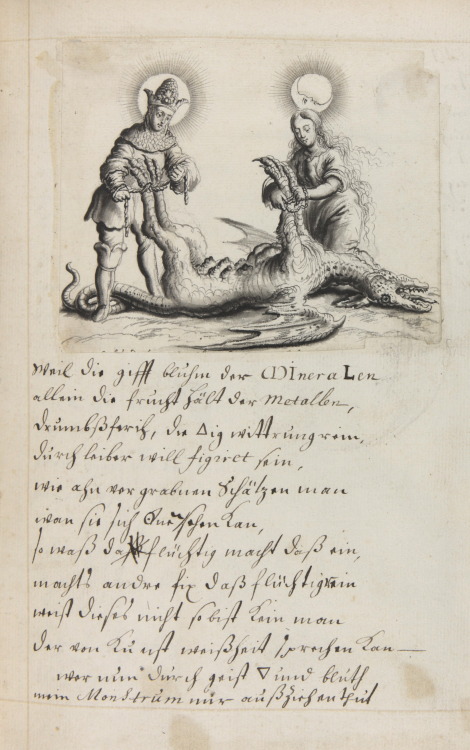 Weil die gifft bluhm der MIneraLen
allein die frucht hält der Metallen,
die △ig wittrung rein,
durch leiber will figiret sein,
wie ahn vergrabnen Schätzen man
wan sie sich sehen kan,
so waß da flüchtig macht daß ein,
machts andre fix daß flüchtig rein
weist dieses nicht so bist kein man
der von Kunst weißheit sprechen kan—
wer nun durch geist ▽ und bluth
mein Monstrum nur außziehen thut